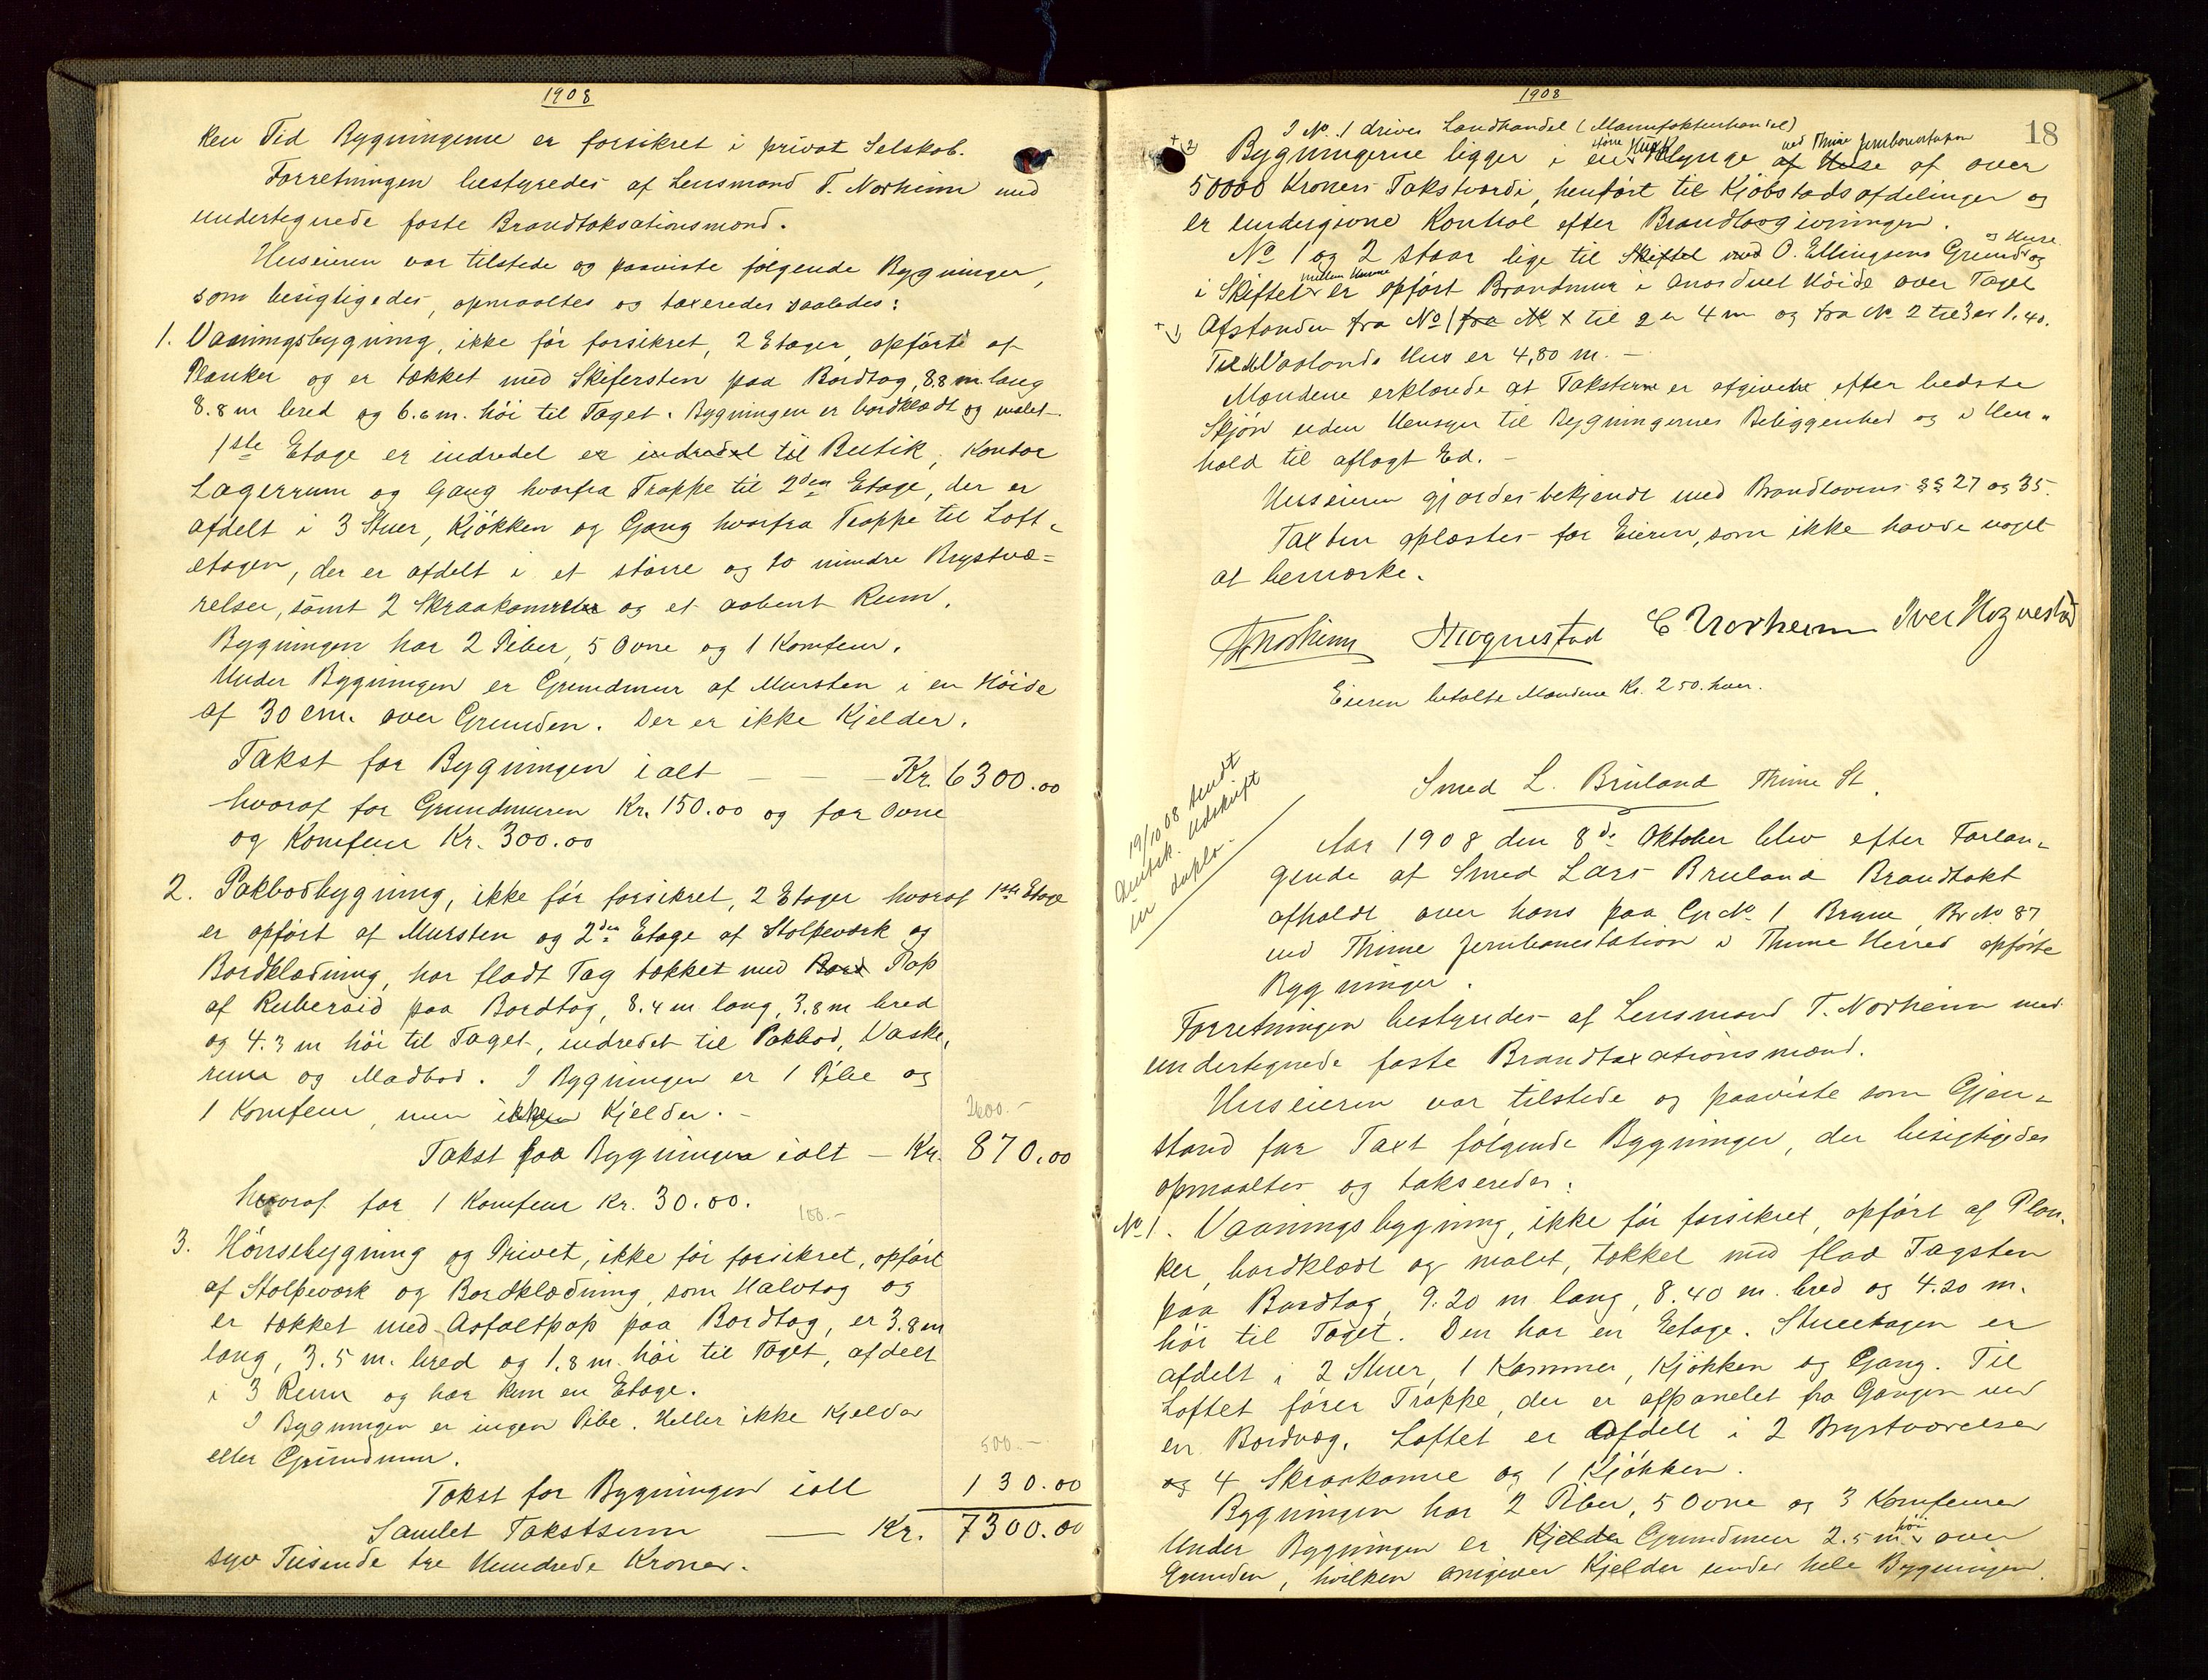 1908
ken Tid Bygningerne er forsikret i privat Selskab.
Forretningen bestyredes af Lensmand T. Norheim med
undertegnede faste Brandtaksationsmænd.
Huseieren var tilstede og paaviste følgende Bygninger,
som besigtigedes, opmaaltes og taxeredes saaledes:
1. Vaaningsbygning, ikke før forsikret, 2 Etager, opført af
Planker og er tækket med Skifersten paa Bordtag, 8.8 m. lang
8.8 m bred og 6.6 m. høi til Taget. Bygningen er bordklædt og malet.
1ste Etage er indredet er indredet til Butik, Kontor
Lagerrum og Gang hvorfra Trappe til 2den Etage, der er
afdelt i 3 Stuer, Kjøkken og Gang hvorfra Trappe til Loft-
etagen, der er afdelt i et større og to mindre Brystvæ=
relser, samt 2 Skraakamre og et aabent Rum.
Bygningen har 2 Piber, 5 Ovne og 1 Komfeur.
Under Bygningen er Grundmur af Mursten i en Høide
af 30 cm. over Grunden. Der er ikke Kjelder.
Takst for Bygningen ialt — — — Kr. 6300.00
hvoraf for Grundmuren Kr. 150.00 og for Ovne
og Komfeur Kr. 300.00
2. Pakbodbygning, ikke før forsikret, 2 Etager hvoraf 1ste Etage
er opført af Mursten og 2den Etage af Stolpeværk og
Bordklædning, har fladt Tag tækket med Bord Pap
af Ruberoid paa Bordtag, 8.4 m lang, 3.8 m bred
og 4.3 m høi til Taget, indredet til Pakbod, Vaske-
rum og Madbod. I Bygningen er 1 Pibe og
1 Komfeur, men ikke Kjelder. —
2600.—
Takst paa Bygningen ialt — Kr. 870.00
hvoraf for 1 Komfeur Kr. 30.00.
100.—
3. Hønsebygning og Privet, ikke før forsikret, opført
af Stolpeværk og Bordklædning, som Halvtag og
er tækket med Asfaltpap paa Bordtag, er 3.8 m
lang, 3.5 m. bred og 1.8 m. høi til Taget, afdelt
i 3 Rum og har kun en Etage.
I Bygningen er ingen Pibe. Heller ikke Kjelder
eller Grundmur.
500.—
Takst for Bygningen ialt 130.00
Samlet Takstsum — Kr. 7300.00
syv Tusinde tre Hundrede Kroner.
1908
18
I No. 1 drives Landhandel (Manufakturhandel)
større Hus ved Thime Jernbanestation
Bygningerne ligger i en Klynge af Huse af over
50000 Kroners Takstværdi, henført til Kjøbstadsafdelingen og
er undergivne Kontrol efter Brandlovgivningen.
og Huse
No 1 og 2 staar lige til Skiftet med O. Ellingsens Grund og
mellem Husene
i Skiftet er opført Brandmur i anordnet Høide over Taget
Afstanden fra No 1 fra No x til 2 er 4 m og fra No 2 til 3 er 1.40.
Til Vaalands Hus er 4,80 m. —
Mændene erklærede at Taksterne er afgivne efter bedste
Skjøn uden Hensyn til Bygningernes Beliggenhed og i Hen-
hold til aflagt Ed. —
Huseieren gjordes bekjendt med Brandlovens §§ 27 og 35.
Taxten oplæstes for Eieren, som ikke havde noget
at bemærke.
T Norheim Hognestad E Norheim Iver Hognestad
Eieren betalte Mændene Kr. 2 50. hver.
Smed L. Bruland Thime St.
19/10 08 sendt
Amtsk. Udskrift
in duplo.
Aar 1908 den 8de Oktober blev efter Forlan-
gende af Smed Lars Bruland Brandtakst
afholdt over hans paa Gr No 1 Bryne, Br No 87
ved Thime Jernbanestation i Thime Herred opførte
Bygninger.
Forretningen bestyredes af Lensmand T. Norheim med
undertegnede faste Brandtaxationsmænd.
Huseieren var tilstede og paaviste som Gjen-
stand for Taxt følgende Bygninger, der besigtigedes
opmaaltes og takseredes:
No 1. Vaaningsbygning, ikke før forsikret, opført af Plan-
ker, bordklædt og malet, tækket med flad Tagsten
paa Bordtag, 9.20 m lang, 8.40 m. bred og 4.20 m.
høi til Taget. Den har en Etage. Stueetagen er
afdelt i 2 Stuer, 1 Kammer, Kjøkken og Gang. Til
Loftet fører Trappe, der er afpanelet fra Gangen ved
en Bordvæg. Loftet er afdelt i 2 Brystværelser
og 4 Skraakamre og 1 Kjøkken.
Bygningen har 2 Piber, 5 Ovne og 3 Komfeurer
høi
Under Bygningen er Kjelder Grundmur 2.5 m over
Grunden, hvilken omgiver Kjelder under hele Bygningen.